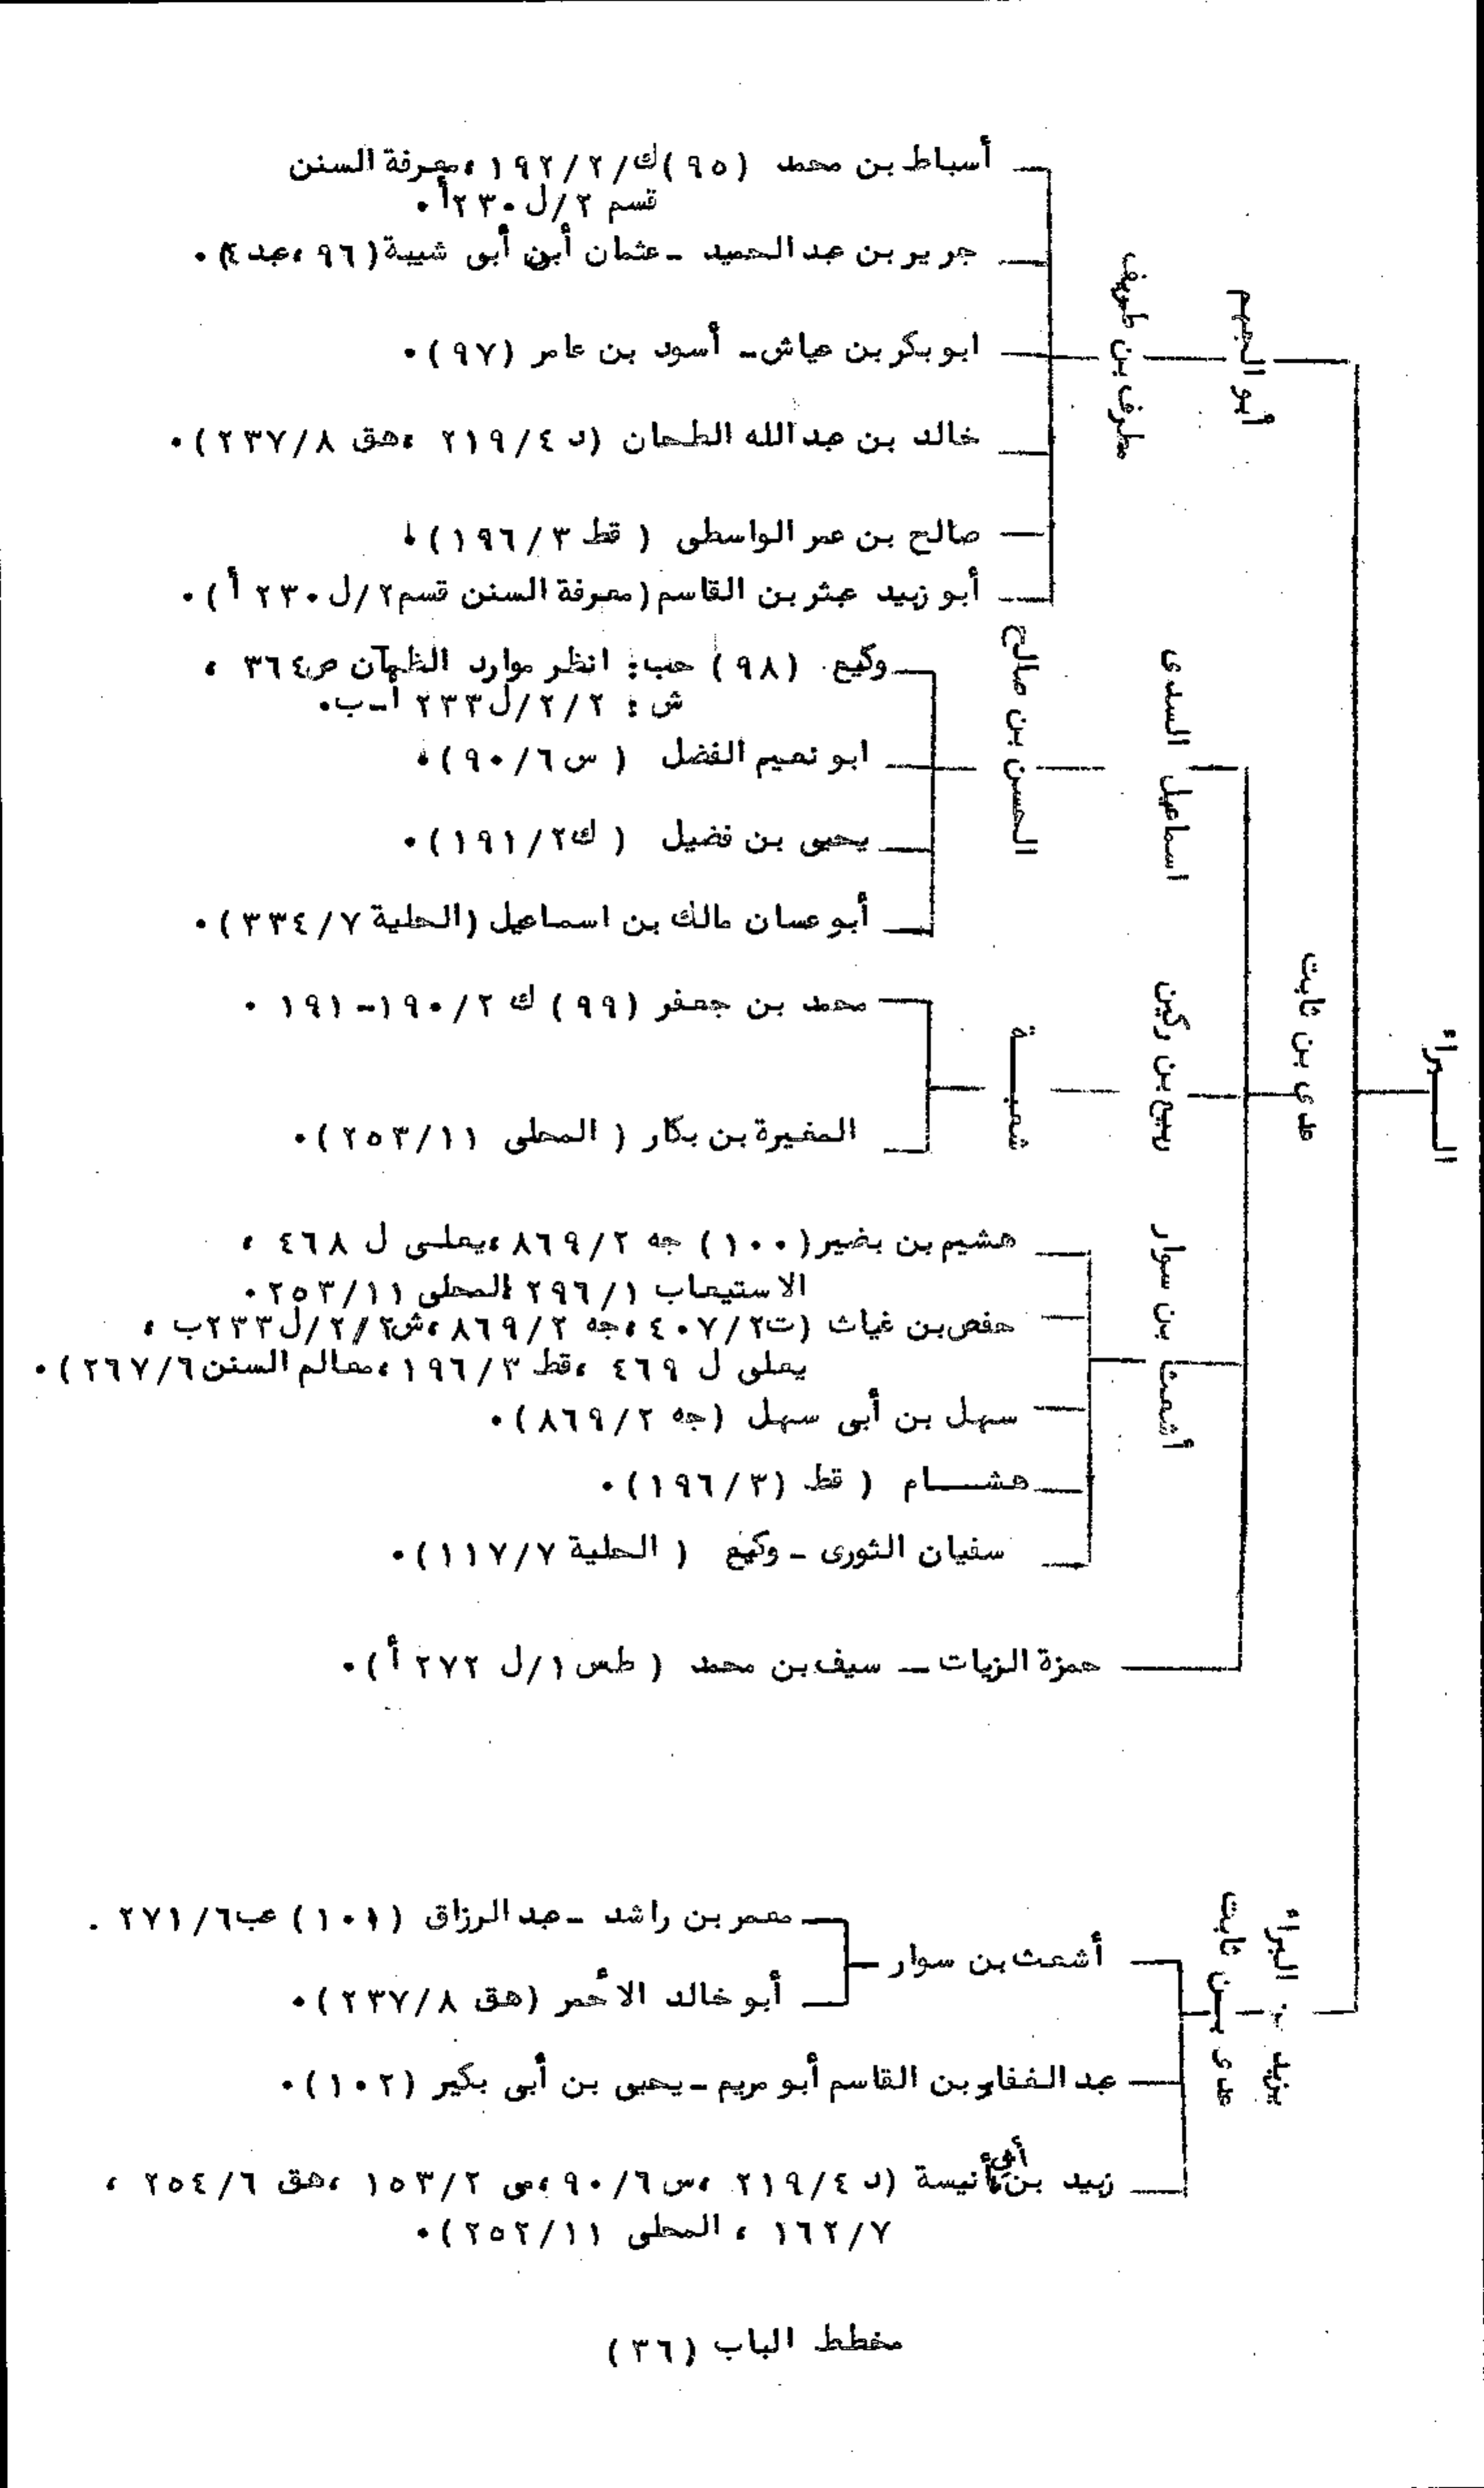 البراء
أبو الجهم
مطرف بن طريف
أسباط بن محمد (٩٥) ك/١٩٢/٢ ،معرفة السنن
قسم ٢/ل٢٣٠أ.
جرير بن عبد الحميد - عثمان أبن أبى شيبة (٩٦ ،عبد٤).
ابو بكر بن عياش - أسود بن عامر (٩٧).
خالد بن عبدالله الطحان (د ٢١٩/٤ ،هق ٢٣٧/٨).
صالح بن عمر الواسطى ( قط ١٩٦/٣).
أبو زبيد عبثر بن القاسم (معرفة السنن قسم٢/ل٢٣٠ أ).
عدى بن ثابت
اسماعيل السدى
الحسن بن صالح
وكيع. (٩٨) حب: انظر موارد الظمآن ص٣٦٤ ،
ش : ٢/٢/ل٢٣٣ أ-ب.
ابو نعيم الفضل ( س٩٠/٦).
يحيى بن فضيل ( ك١٩١/٢).
أبو غسان مالك بن اسماعيل (الحلية ٣٣٤/٧).
ربيع بن ركين
شعبـــة
محمد بن جعفر (٩٩) ك ١٩٠/٢-١٩١ .
المغيرة بن بكار ( المحلى ٢٥٣/١١).
أشعث بن سوار
هشيم بن بشير (١٠٠) جه ٨٦٩/٢ ،يعلى ل ٤٦٨ ،
الاستيعاب ٢٩٦/١ المحلى ٢٥٣/١١.
حفص بن غياث (ت٤٠٧/٢ ،جه ٨٦٩/٢ ،ش٢/٢/ل٢٣٣ب ،
يعلى ل ٤٦٩ ،قط ١٩٦/٣ ،معالم السنن٢٦٧/٦).
سهل بن أبى سهل (جه ٨٦٩/٢).
هشـــام ( قط ١٩٦/٣).
سفيان الثورى - وكيع ( الحلية ١١٧/٧).
حمزة الزيات - سيف بن محمد ( طس ١/ل ٢٧٢ أ).
يزيد بن البراء
عدى بن ثابت
أشعث بن سوار
معمر بن راشد - عبد الرزاق (١٠١) عب٢٧١/٦ .
أبو خالد الأحمر (هق ٢٣٧/٨).
عبد الغفار بن القاسم أبو مريم - يحيى بن أبى بكير (١٠٢).
زيد بن أبى أنيسة (د ٢١٩/٤ ،س٩٠/٦ ،مى ١٥٣/٢ ،هق ٢٥٤/٦ ،
١٦٢/٧ ، المحلى ٢٥٢/١١).
مخطط الباب (٣٦)